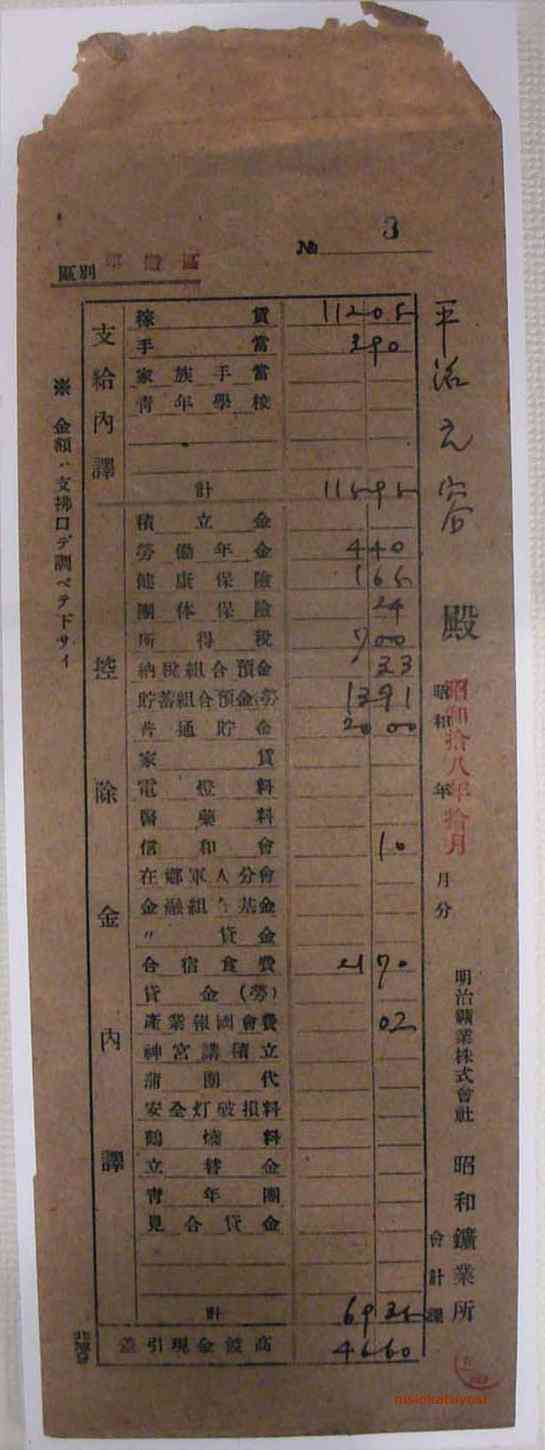 № 3
區別
平沼元容 殿
昭和 年 月分
昭和拾八年拾月
明治鑛業株式會社 昭和鑛業所
會計課
支給內譯
稼賃 112 05
手當 3 90
家族手當
青年學校
計 115 95
控除金內譯
積立金
勞働年金 4 40
健康保險 1 65
團体保險 24
所得稅 7 00
納稅組合預金 33
貯蓄組合預金(勞) 13 91
普通貯金 20 00
家賃
電燈料
醫藥料
信和會 10
在鄉軍人分會
金融組合基金
〃 貸金
合宿食費 21 70
貸金(勞)
產業報國會費 02
神宮講積立
蒲團代
安全灯破損料
鶴嘴料
立替金
青年團
見合貸金
計 69 35
差引現金渡高 46 60
※ 金額ハ支拂口デ調ベテ下サイ
nisiokatuyosi